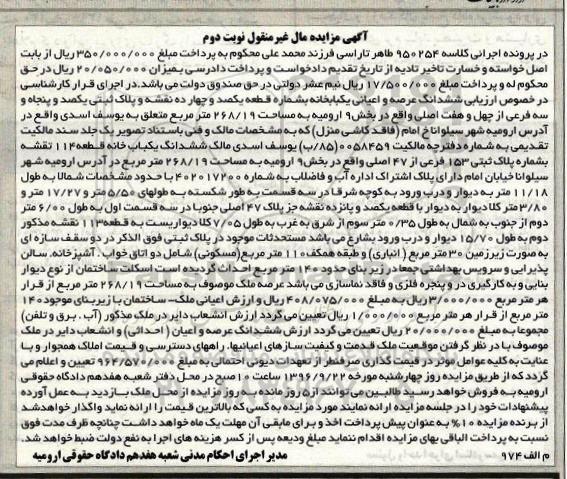 آگهی مزایده مال غیرمنقول نوبت دوم
در پرونده اجرائی کلاسه 950254 طاهر تاراسی فرزند محمد علی محکوم به پرداخت مبلغ 350/000/000 ریال از بابت
اصل خواسته و خسارت تاخیر تادیه از تاریخ تقدیم دادخواست و پرداخت دادرسی بمیزان 20/050/000 ریال در حق
محکوم له و پرداخت مبلغ 17/500/000 ریال نیم عشر دولتی در حق صندوق دولت می باشد. در اجرای قرار کارشناسی
در خصوص ارزیابی ششدانگ عرصه و اعیانی یکبابخانه بشماره قطعه یکصد و چهار ده نقشه و پلاک ثبتی یکصد و پنجاه و
سه فرعی از چهل و هفت اصلی واقع در بخش 9 ارومیه به مساحت 268/19 متر مربع متعلق به یوسف اسدی واقع در
آدرس ارومیه شهر سیلوانا خ امام (فاقد کاشی منزل) که به مشخصات مالک و فنی باستناد تصویر یک جلد سند مالکیت
تقدیمی به شماره دفترچه مالکیت 0058459 (85/ب) یوسف اسدی مالک ششدانگ یکباب خانه قطعه 114 نقشه
بشماره پلاک ثبتی 153 فرعی از 47 اصلی واقع در بخش 9 ارومیه به مساحت 268/19 متر مربع در آدرس ارومیه شهر
سیلوانا خیابان امام دارای پلاک اشتراک اداره آب و فاضلاب به شماره 402017200 با حدود مشخصات شمالا به طول
11/18 متر به دیوار و درب ورود به کوچه شرقا در سه قسمت به طور شکسته به طولهای 5/50 متر و 17/27 متر و
3/80 متر کلا دیوار به دیوار با قطعه یکصد و پانزده نقشه جز پلاک 47 اصلی جنوبا در سه قسمت اول به طول 6/00 متر
دوم از جنوب به شمال به طول 0/35 متر سوم از شرق به غرب به طول 7/05 کلا دیواریست به قطعه 113 نقشه مذکور
دوم به طول 15/70 دیوار و درب ورود بشارع می باشد مستحدثات موجود در پلاک ثبتی فوق الذکر در دو سقف سازه ای
به صورت زیرزمین 30 متر مربع (انباری) و طبقه همکف 110 متر مربع (مسکونی) شامل دو اتاق خواب، آشپزخانه، سالن
پذیرایی و سرویس بهداشتی جمعا در زیر بنای حدود 140 متر مربع احداث گردیده است اسکلت ساختمان از نوع دیوار
بنایی و به کارگیری در و پنجره فلزی و فاقد نماسازی می باشد عرصه ملک موصوف به مساحت 268/19 متر مربع از قرار
هر متر مربع 3/000/000 ریال به مبلغ 408/075/000 ریال و ارزش اعیانی ملک- ساختمان با زیربنای موجود 140
متر مربع از قرار هر متر مربع 1/000/000 ریال تعیین می گردد ارزش انشعاب دایر در ملک مذکور (آب. برق و تلفن)
مجموعا به مبلغ 20/000/000 ریال تعیین می گردد ارزش ششدانگ عرصه و اعیان (احداثی) و انشعاب دایر در ملک
موصوف با در نظر گرفتن موقعیت ملک قدمت و کیفیت سازهای اعیانیها، راههای دسترسی و قیمت املاک همجوار و با
عنایت به کلیه عوامل موثر در قیمت گذاری صرفنظر از تعهدات دیونی احتمالی به مبلغ 964/570/000 تعیین و اعلام می
گردد که از طریق مزایده روز چهارشنبه مورخه 1396/9/22 ساعت 10 صبح در محل دفتر شعبه هفدهم دادگاه حقوقی
ارومیه به فروش خواهد رسید طالبین می توانند از 5 روز مانده به روز مزایده از محل ملک بازدید به عمل آورده
پیشنهادات خود را در جلسه مزایده ارائه نمایند مورد مزایده به کسی که بالاترین قیمت را ارائه نماید واگذار خواهد شد
از برنده مزایده 10% به عنوان پیش پرداخت اخذ و برای مابقی آن مهلت یک ماه خواهد داشت چنانچه ظرف مدت فوق
نسبت به پرداخت الباقی بهای مزایده اقدام ننماید مبلغ ودیعه پس از کسر هزینه های اجرا به نفع دولت ضبط خواهد شد.
م الف 974
مدیر اجرای احکام مدنی شعبه هفدهم دادگاه حقوقی ارومیه